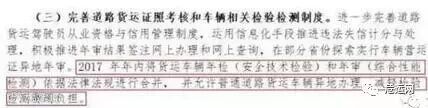 （三）完善道路货运证照考核和车辆相关检验检测制度。进一步完善道路
货运驾驶员从业资格与信用管理制度，运用信息化手段推进违法失信计分与处
理，积极推进年审结果签注网上办理和网上查询，在部分省份探索实行车辆营运
证异地年审。2017 年年内将货运车辆年检（安全技术检验）和年审（综合性能
检测）依据法律法规进行合并，并允许普通道路货运车辆异地办理，减轻检验
检测费用负担。